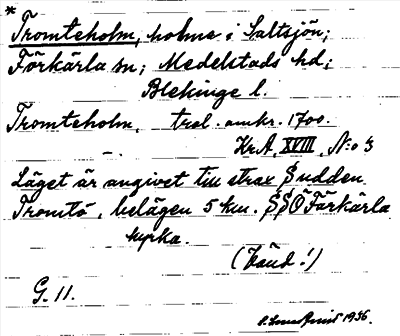 * Tromteholm, holme i Saltsjön;
Förkärla sn; Medelstads hd;
Blekinge l.
Tromteholm, trol. omkr. 1700.
Kr.A. XVIII, N:o 3
Läget är angivet till strax S udden
Tromtö, belägen 5 km. SSÖ Förkärla
kyrka.
(Känd!)
G. 11.
1936.